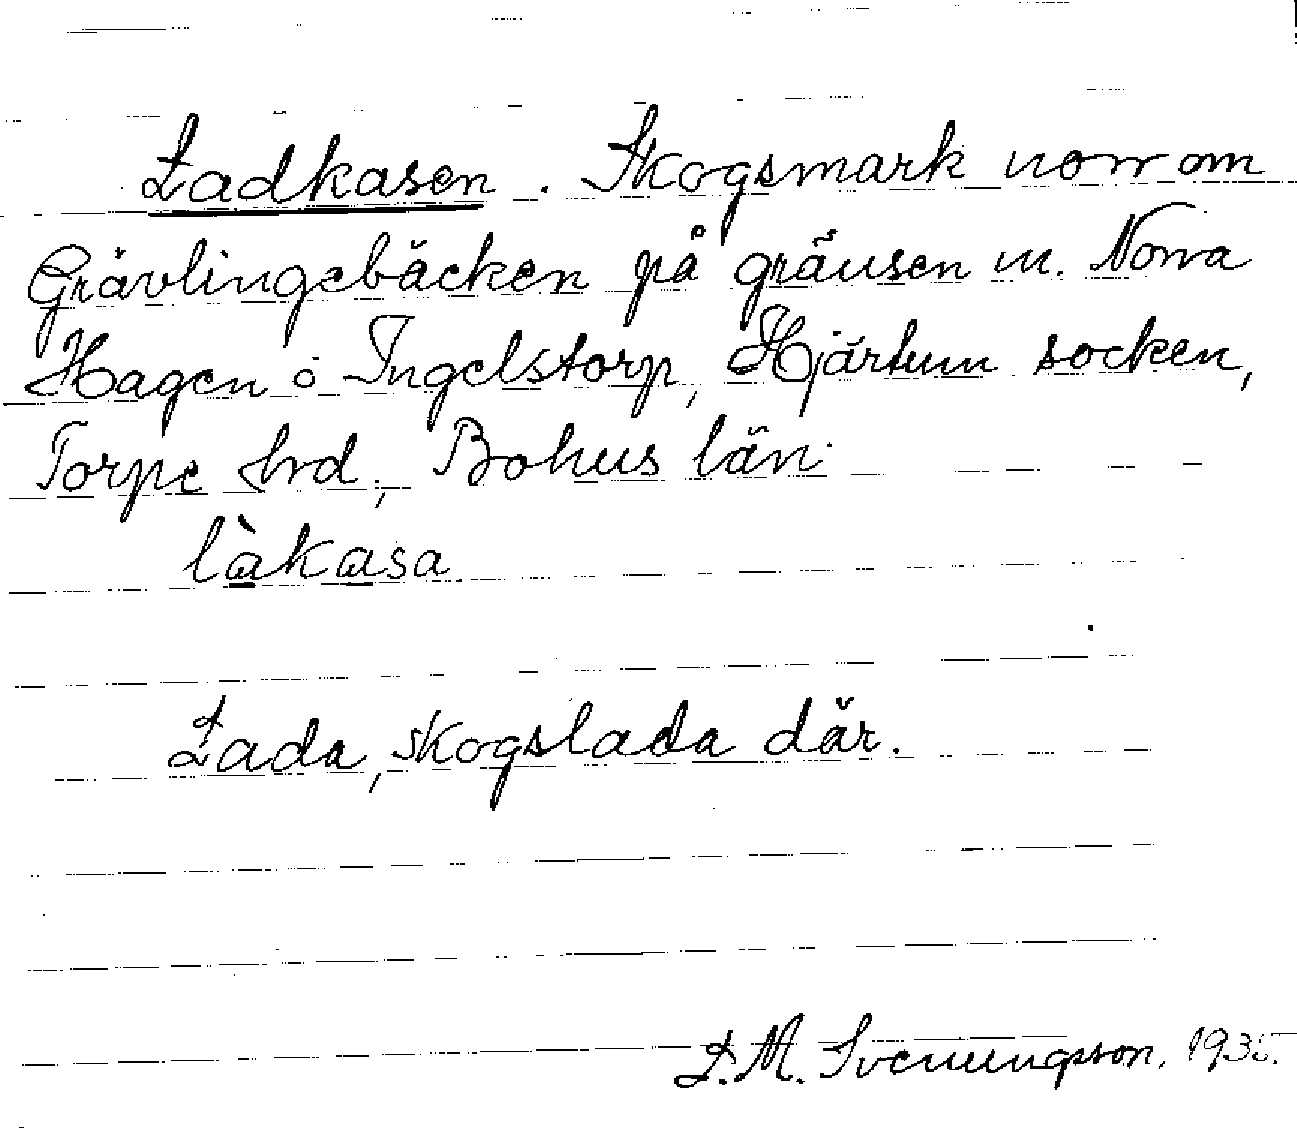 Ladkasen. Skogsmark norr om
Grävlingebäcken på gränsen m. Norra
Hagen o Ingelstorp, Hjärtum socken,
Torpe hrd, Bohus län.
làkasa
Lada, skogslada där.
L. M. Svenungsson.